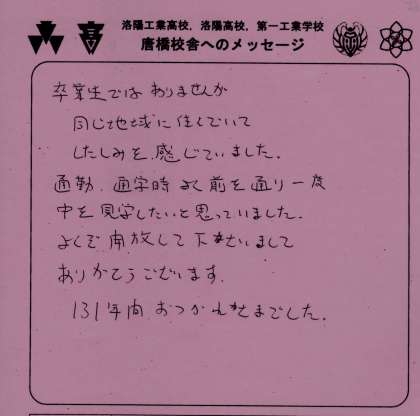 洛陽工業高校、洛陽高校、第一工業学校
唐橋校舎へのメッセージ
卒業生ではありませんが
同じ地域に住んでいて
したしみを感じていました。
通勤、通学時よく前を通り一度
中を見学したいと思っていました。
よくぞ開放して下さいまして
ありがとうございます。
131年間おつかれさまでした。